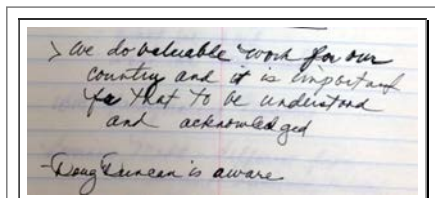 > We do valuable work for our
country and it is important
for that to be understood
and acknowledged
-Doug Duncan is aware